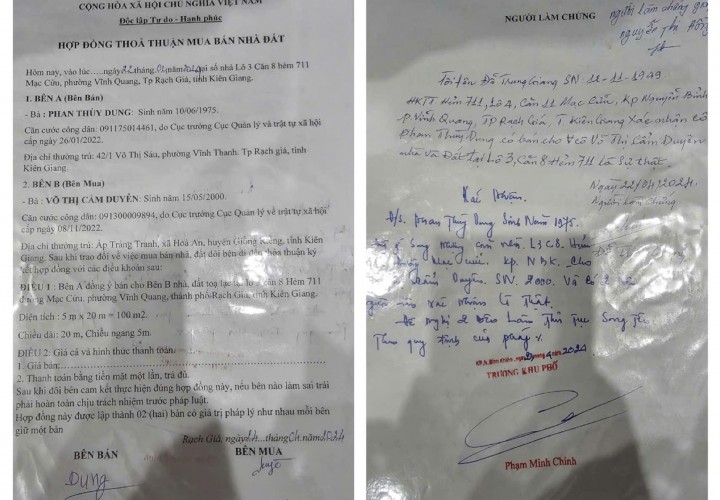 CỘNG HÒA XÃ HỘI CHỦ NGHĨA VIỆT NAM
Độc lập Tự do - Hạnh phúc
HỢP ĐỒNG THOẢ THUẬN MUA BÁN NHÀ ĐẤT
Hôm nay, vào lúc.....ngày22.tháng.04.năm2024tại số nhà Lô 3 Căn 8 hẻm 711
Mạc Cửu, phường Vĩnh Quang, Tp Rạch Giá, tỉnh Kiên Giang.
1. BÊN A (Bên Bán)
- Bà : PHAN THÙY DUNG: Sinh năm 10/06/1975.
Căn cước công dân: 091175014461, do Cục trưởng Cục Quản lý và trật tự xã hội
cấp ngày 26/01/2022.
Địa chỉ thường trú: 42/1 Võ Thị Sáu, phường Vĩnh Thanh. Tp Rạch giá, tỉnh
Kiên Giang.
2. BÊN B (Bên Mua)
- Bà : VÕ THỊ CẨM DUYÊN: Sinh năm 15/05/2000.
Căn cước công dân: 091300009894, do Cục trưởng Cục Quản lý về trật tự xã hội
cấp ngày 08/11/2022.
Địa chỉ thường trú: Ấp Tràng Tranh, xã Hòa An, huyện Giồng Riềng, tỉnh Kiên
Giang. Sau khi trao đổi về việc mua bán nhà, đất đôi bên đi đến thỏa thuận ký
kết hợp đồng với các điều khoản sau:
ĐIỀU 1 : Bên A đồng ý bán cho Bên B nhà, đất toạ lạc tại lô 3 căn 8 Hẻm 711
đường Mạc Cửu, phường Vĩnh Quang, thành phố Rạch Giá, tỉnh Kiên Giang.
Diện tích : 5 m x 20 m = 100 m2.
Chiều dài: 20 m, Chiều ngang 5m.
ĐIỀU 2: Giá cả và hình thức thanh toán.
1. Giá bán:
2. Thanh toán bằng tiền mặt một lần, trả đủ.
Sau khi đôi bên cam kết thực hiện đúng hợp đồng này, nếu bên nào làm sai trái
phải hoàn toàn chịu trách nhiệm trước pháp luật.
Hợp đồng này được lập thành 02 (hai) bản có giá trị pháp lý như nhau mỗi bên
giữ một bản
Rạch Giá, ngày22...tháng04.năm2024
BÊN BÁN
BÊN MUA
Dung
NGƯỜI LÀM CHỨNG
người làm chứng
nguyễn thị Hồng
Tôi tên Đỗ Trung Giang SN: 11-11-1949
HKTT Hẻm 711, Lô 4, Căn 11 Mạc Cửu, Kp Nguyễn Bỉnh
P. Vĩnh Quang, TP Rạch Giá, T Kiên Giang Xác nhận cô
Phan Thùy Dung có bán cho cô Võ Thị Cẩm Duyên
nhà và Đất tại Lô 3, Căn 8 Hẻm 711 là sự thật.
Ngày 22/04/2024.
Người làm chứng
Xác Nhận.
Phan Thùy Dung Sinh Năm 1975.
L3 C8.
KP. NBK. Cho
Cẩm Duyên. SN. 2000.
xác Nhận là Thật.
Đề nghị 2 Bên Làm Thủ Tục
Theo quy định của pháp
4 2024
TRƯỞNG KHU PHỐ
Phạm Minh Chinh